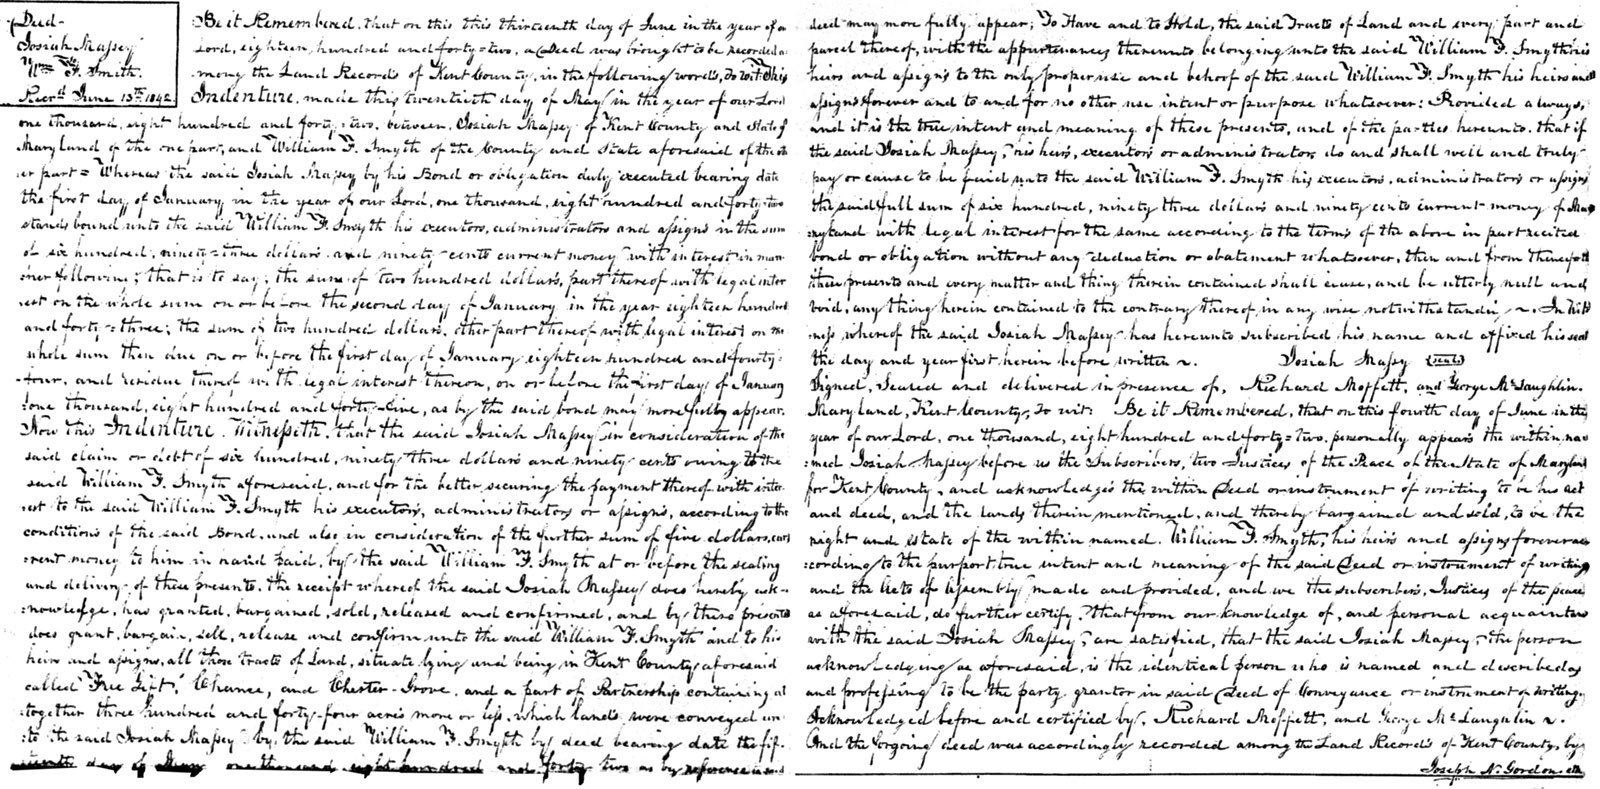 Deed
Josiah Massey
Wm. F. Smith.
Recd. June 13th 1842
Be it Remembered, that on this this thirteenth day of June in the year of o
Lord, eighteen hundred and forty=two, a Deed was brought to be recorded a
mong the Land Records of Kent County, in the following words, to wit This
Indenture, made this twentieth day of May in the year of our Lord
one thousand, eight hundred and forty-two, between, Josiah Massey of Kent County and State of
Maryland of the one part, and William F. Smyth of the County and State aforesaid of the oth
er part = Whereas the said Josiah Massey by his Bond or obligation duly executed bearing date
the first day of January in the year of our Lord, one thousand, eight hundred and forty-two
stands bound unto the said William F. Smyth his executors, administrators and assigns in the sum
of six hundred, ninety=three dollars and ninety-cents current money with interest in man
ner following; that is to say; the sum of two hundred dollars, part thereof with legal inter
est on the whole sum on or before the second day of January in the year eighteen hundred
and forty=three; the sum of two hundred dollars, other part thereof with legal interest on the
whole sum then due on or before the first day of January eighteen hundred and fourty-
-four, and residue thereof with legal interest thereon, on or before the first day of January
one thousand, eight hundred and forty-five, as by the said bond may more fully appear.
Now this Indenture Witnesseth, that the said Josiah Massey in consideration of the
said claim or debt of six hundred, ninety three dollars and ninety cents owing to the
said William F. Smyth aforesaid, and for the better securing the payment thereof with inter
est to the said William F. Smyth his executors, administrators or assigns, according to the
conditions of the said Bond, and also in consideration of the further sum of five dollars, cur
rent money to him in hand paid, by the said William F. Smyth at or before the sealing
and delivery of these presents, the receipt whereof the said Josiah Massey does hereby ack-
nowledge, has granted, bargained, sold, released and confirmed, and by these presents
does grant, bargain, sell, release and confirm unto the said William F. Smyth and to his
heirs and assigns, all those tracts of Land, situate lying and being in Kent County aforesaid
called "Free Gift," Chance, and Chester-Grove, and a part of Partnership containing al
together three hundred and forty-four acres more or less, which lands were conveyed un-
to the said Josiah Massey by the said William F. Smyth by deed bearing date the fif-
teenth day of May one thousand eight hundred and forty two as by reference to said
deed may more fully appear; To Have and to Hold, the said Tracts of Land and every part and
parcel thereof, with the appurtenances thereunto belonging unto the said William F. Smyth his
heirs and assigns to the only proper use and behoof of the said William F. Smyth his heirs and
assigns forever and to and for no other use intent or purpose whatsoever: Provided always,
and it is the true intent and meaning of these presents, and of the parties hereunto, that if
the said Josiah Massey, his heirs, executors or administrators do and shall well and truly
pay or cause to be paid unto the said William F. Smyth his executors, administrators or assigns
the said full sum of six hundred, ninety three dollars and ninety cents current money of Ma
ryland with legal interest for the same according to the terms of the above in part recited
bond or obligation without any deduction or abatement whatsoever, then and from thenceforth
these presents and every matter and thing therein contained shall cease, and be utterly null and
void, any thing herein contained to the contrary thereof in any wise notwithstanding. In Wit
ness whereof the said Josiah Massey has hereunto subscribed his name and affixed his seal
the day and year first herein before written. Josiah Massey (seal)
Signed, Sealed and delivered in presence of, Richard Moffett, and George McLaughlin.
Maryland, Kent County, to wit: Be it Remembered, that on this fourth day of June in the
year of our Lord, one thousand, eight hundred and forty=two, personally appears the within, na
med Josiah Massey before us the Subscribers, two Justices of the Peace of the State of Maryland
for Kent County, and acknowledges the within Deed or instrument of writing to be his act
and deed, and the lands therein mentioned, and thereby bargained and sold, to be the
right and estate of the within named William F. Smyth, his heirs and assigns forever ac
cording to the purport true intent and meaning of the said Deed or instrument of writing
and the Acts of Assembly made and provided, and we the subscribers, Justices of the peace
as aforesaid, do further certify, that from our knowledge of, and personal acquaintance
with the said Josiah Massey, are satisfied, that the said Josiah Massey, the person
acknowledging as aforesaid, is the identical person who is named and described as
and professing to be the party grantor in said Deed of Conveyance or instrument of writing,
Acknowledged before and certified by, Richard Moffett, and George McLaughlin.
And the forgoing deed was accordingly recorded among the Land Records of Kent County, by
Joseph N. Gordon clk